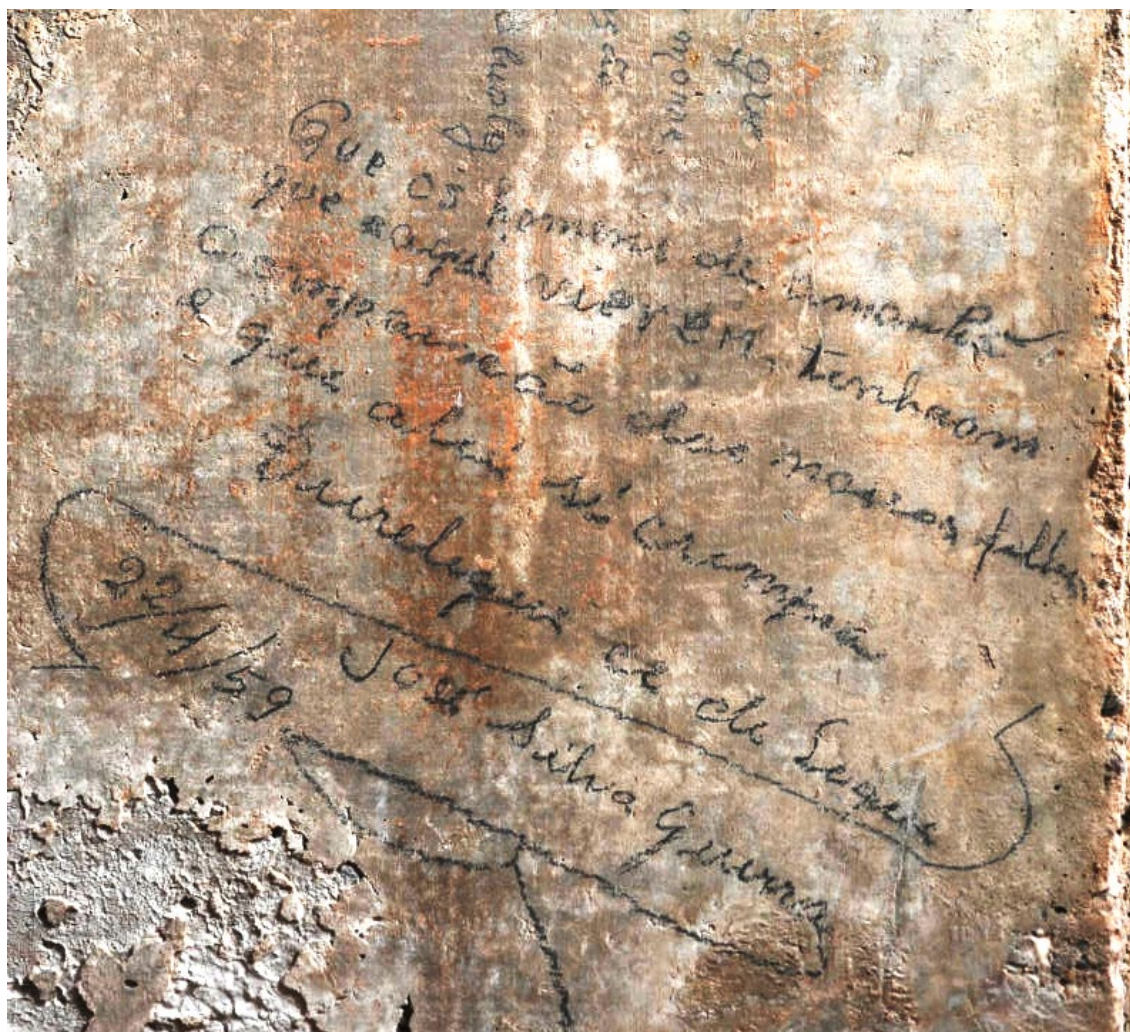 Que os homens de amanhã
que aqui vierem, tenham
Compaixão dos nossos filhos
e que a lei se cumpra
Durelex de Lex
José Silva Guerra
22/4/59